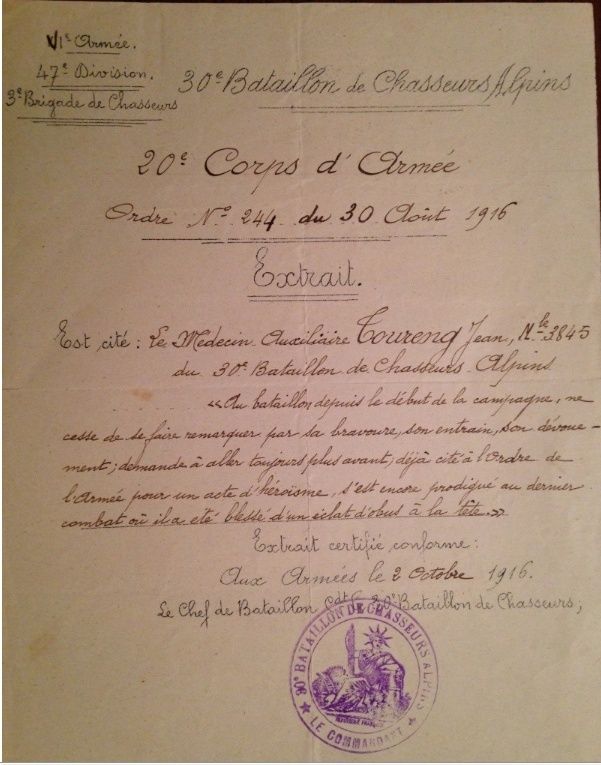 VIe Armée.
47e Division.
3e Brigade de Chasseurs
30e Bataillon de Chasseurs Alpins
20e Corps d'Armée
Ordre No 244 du 30 Août 1916
Extrait.
Est cité : Le Médecin Auxiliaire Toureng Jean, Mle 3845
du 30e Bataillon de Chasseurs Alpins
« Au bataillon depuis le début de la campagne, ne
cesse de se faire remarquer par sa bravoure, son entrain, son dévoue-
ment ; demande à aller toujours plus avant ; déjà cité à l'Ordre de
l'Armée pour un acte d'héroïsme, s'est encore prodigué au dernier
combat où il a été blessé d'un éclat d'obus à la tête. »
Extrait certifié conforme :
Aux Armées le 2 Octobre 1916.
Le Chef de Bataillon Cdt le 30e Bataillon de Chasseurs ;
30e BATAILLON DE CHASSEURS ALPINS
LE COMMANDANT